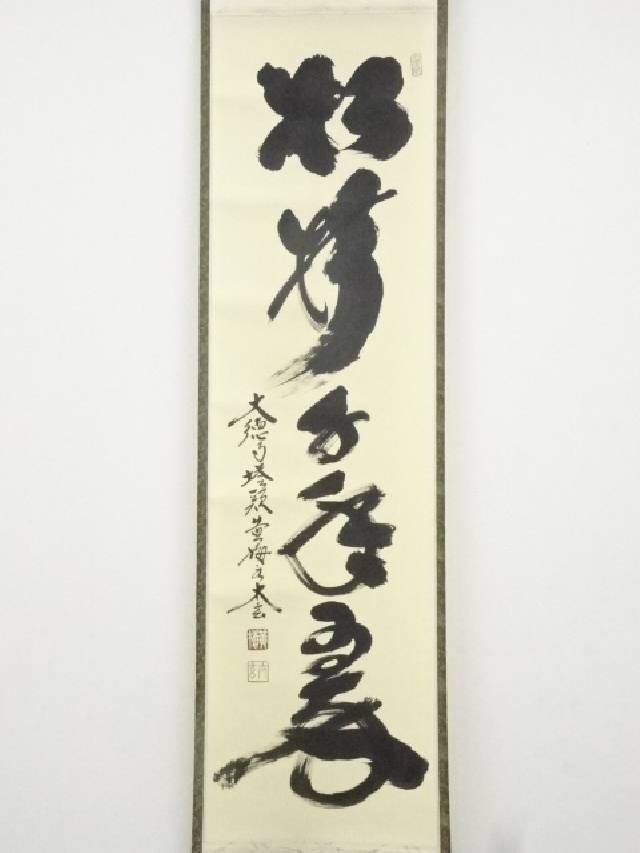 松樹千年翠
大徳寺塔頭黄梅院太玄